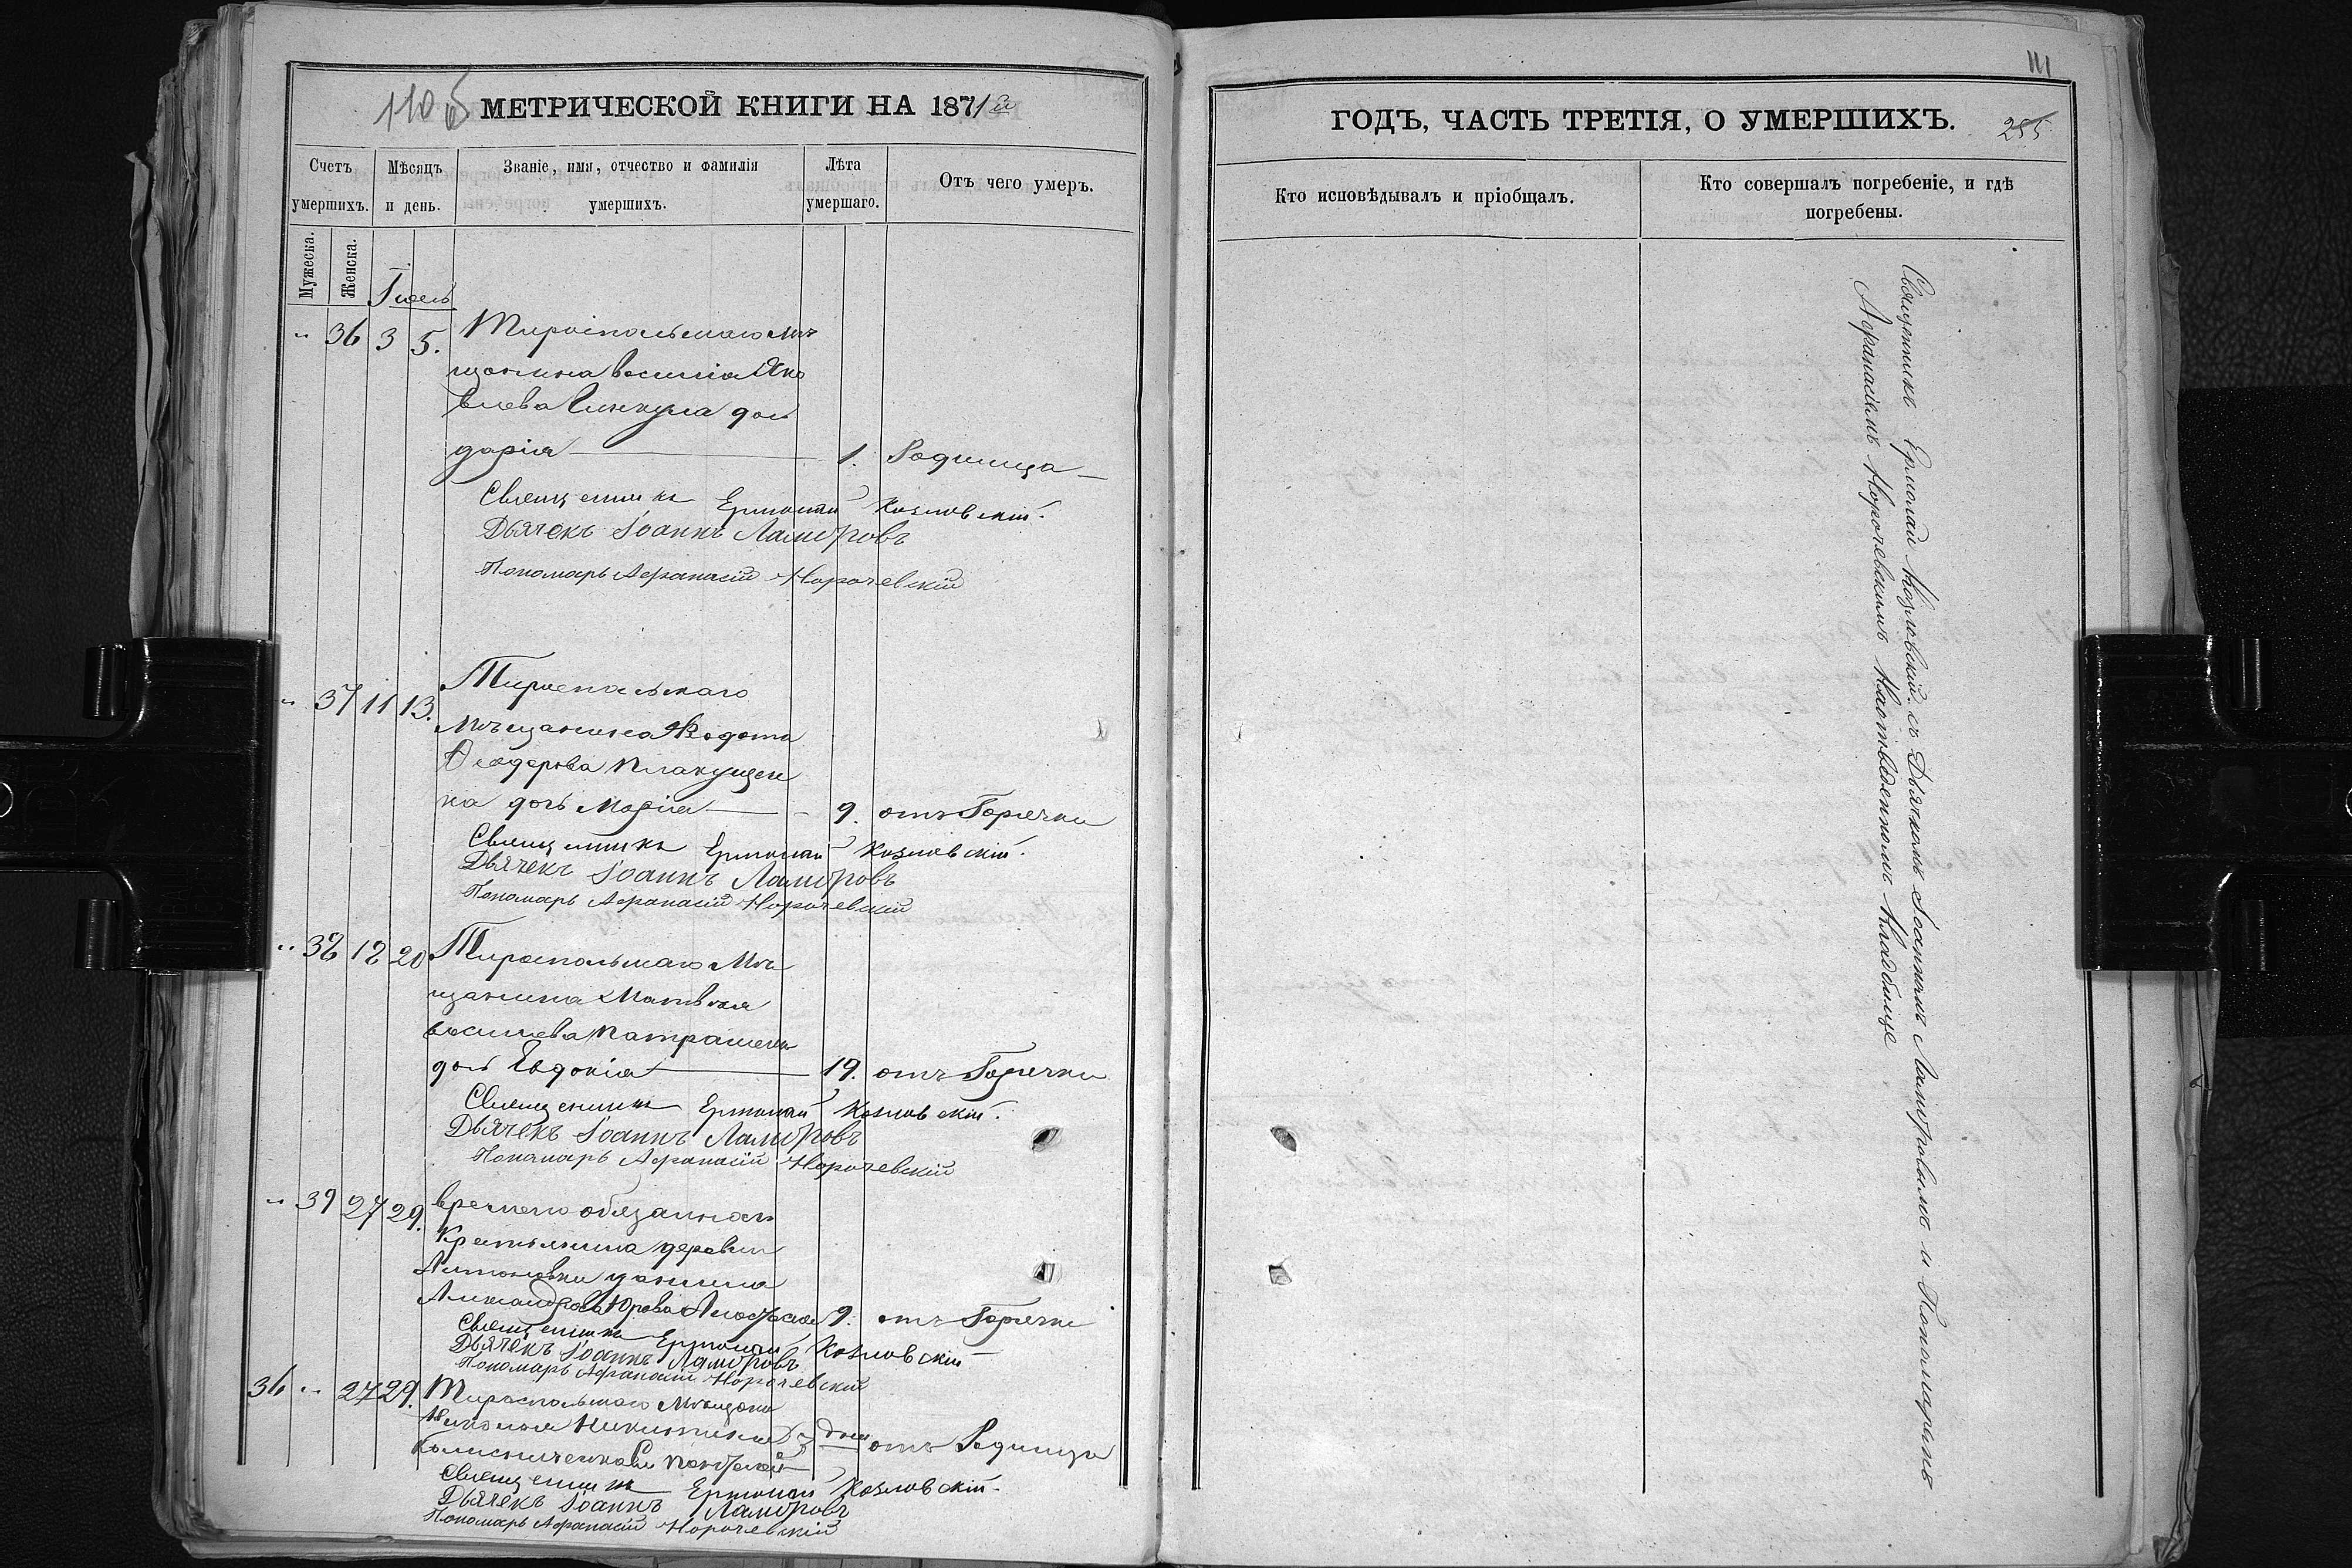 110 б МЕТРИЧЕСКОЙ КНИГИ НА 1871й
Счетъ умершихъ.
Мѣсяцъ и день.
Званіе, имя, отчество и фамилія умершихъ.
Лѣта умершаго.
Отъ чего умеръ.
Мужеска.
Женска.
Іюль
" 36 3 5. Тираспольскаго мѣ
щанина Василія Яко
влева дочь
Дарія 1. Родимца
Священникъ Ермолай Козловскій.
Дьячекъ Іоаннъ Ламбровъ
Пономарь Афанасій Норочевскій
" 37 11 13. Тираспольскаго
Мѣщанина Ѳедота
Ѳеодорова Плакущен
ка дочь Марія 9. отъ Горячки
Священникъ Ермолай Козловскій.
Дьячекъ Іоаннъ Ламбровъ
Пономарь Афанасій Норочевскій
" 38 18 20 Тираспольскаго Мѣ
щанина Матвѣя
Василіева
дочь Евдокія 19. отъ Горячки
Священникъ Ермолай Козловскій.
Дьячекъ Іоаннъ Ламбровъ
Пономарь Афанасій Норочевскій
" 39 27 29. временно обязаннаго
Крестьянина деревни
Антоновки Даніила
Александрова Юрова 9. отъ Горячки
Священникъ Ермолай Козловскій
Дьячекъ Іоаннъ Ламбровъ
Пономарь Афанасій Норочевскій
36 " 27 29. Тираспольскаго Мѣщани
Николая Никитина 3 дня отъ Родимца
Священникъ Ермолай Козловскій.
Дьячекъ Іоаннъ Ламбровъ
Пономарь Афанасій Норочевскій
111
ГОДЪ, ЧАСТЬ ТРЕТІЯ, О УМЕРШИХЪ. 255
Кто исповѣдывалъ и пріобщалъ.
Кто совершалъ погребеніе, и гдѣ погребены.
Священникъ Ермолай Козловскій. съ Дьячкомъ Іоанномъ Ламбровымъ и Пономаремъ
Афанасіемъ Норочевскимъ на отведенномъ кладбище